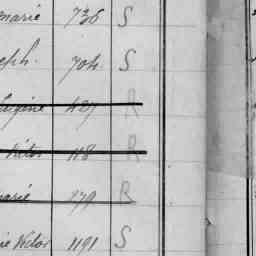 marie 736 S
eph. 704 S
Eugène 427 R
Victor 118 R
marie 179 R
ie Victor 1191 S